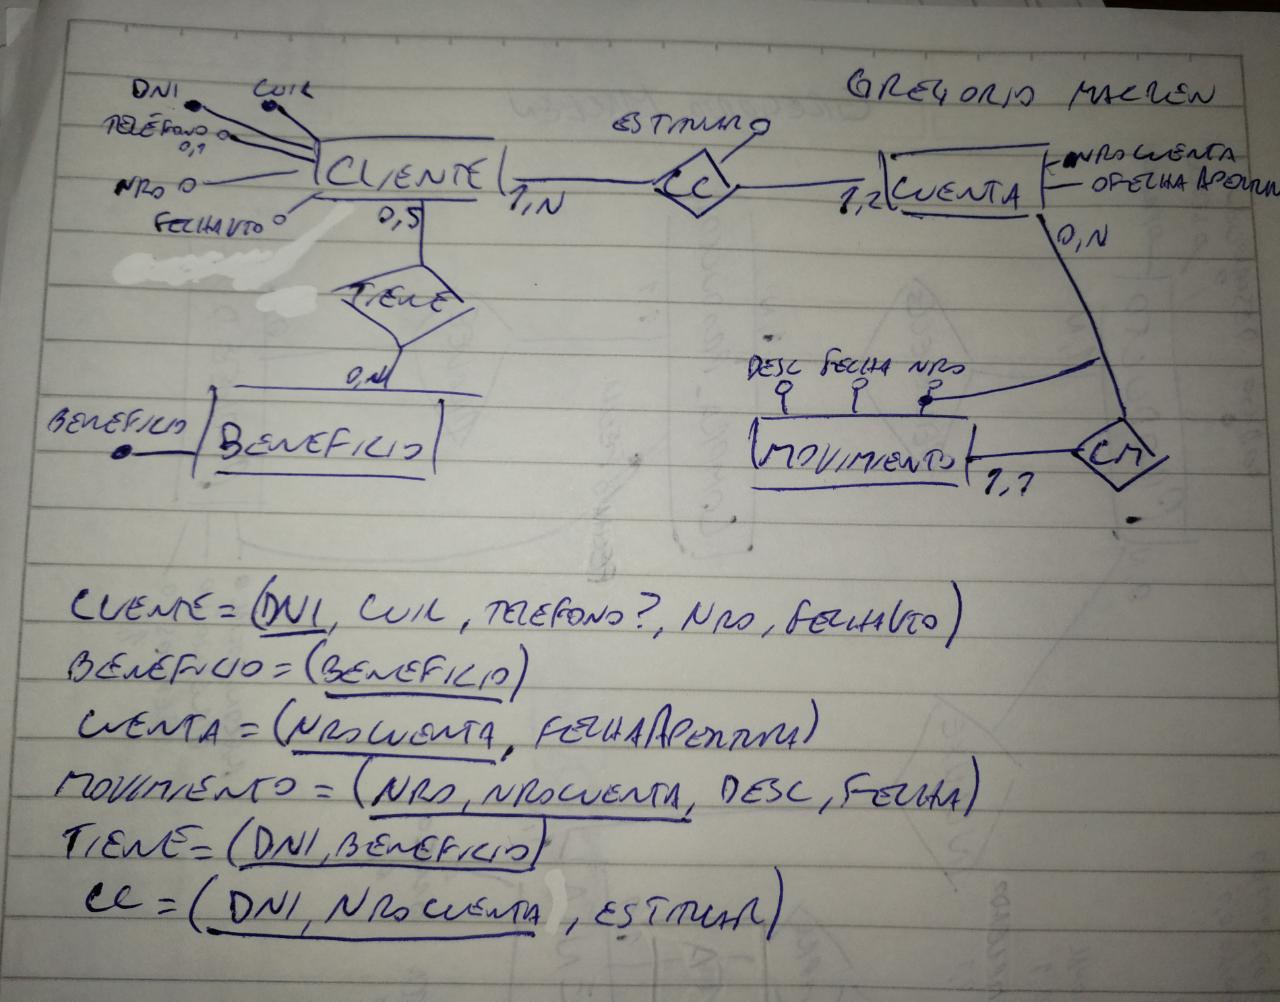 GREGORIO
DNI CUIL
TELÉFONO 0,1
ESTITULAR
NRO CLIENTE 1,N CC 1,2 CUENTA NROCUENTA
FECHAAPERTURA
FECHAVTO 0,5
0,N
TIENE
0,N
DESC FECHA NRO
BENEFICIO BENEFICIO
MOVIMIENTO 1,1 CM
CLIENTE = (DNI, CUIL, TELEFONO?, NRO, FECHAVTO)
BENEFICIO = (BENEFICIO)
CUENTA = (NROCUENTA, FECHAAPERTURA)
MOVIMIENTO = (NRO, NROCUENTA, DESC, FECHA)
TIENE = (DNI, BENEFICIO)
CC = (DNI, NROCUENTA, ESTITULAR)